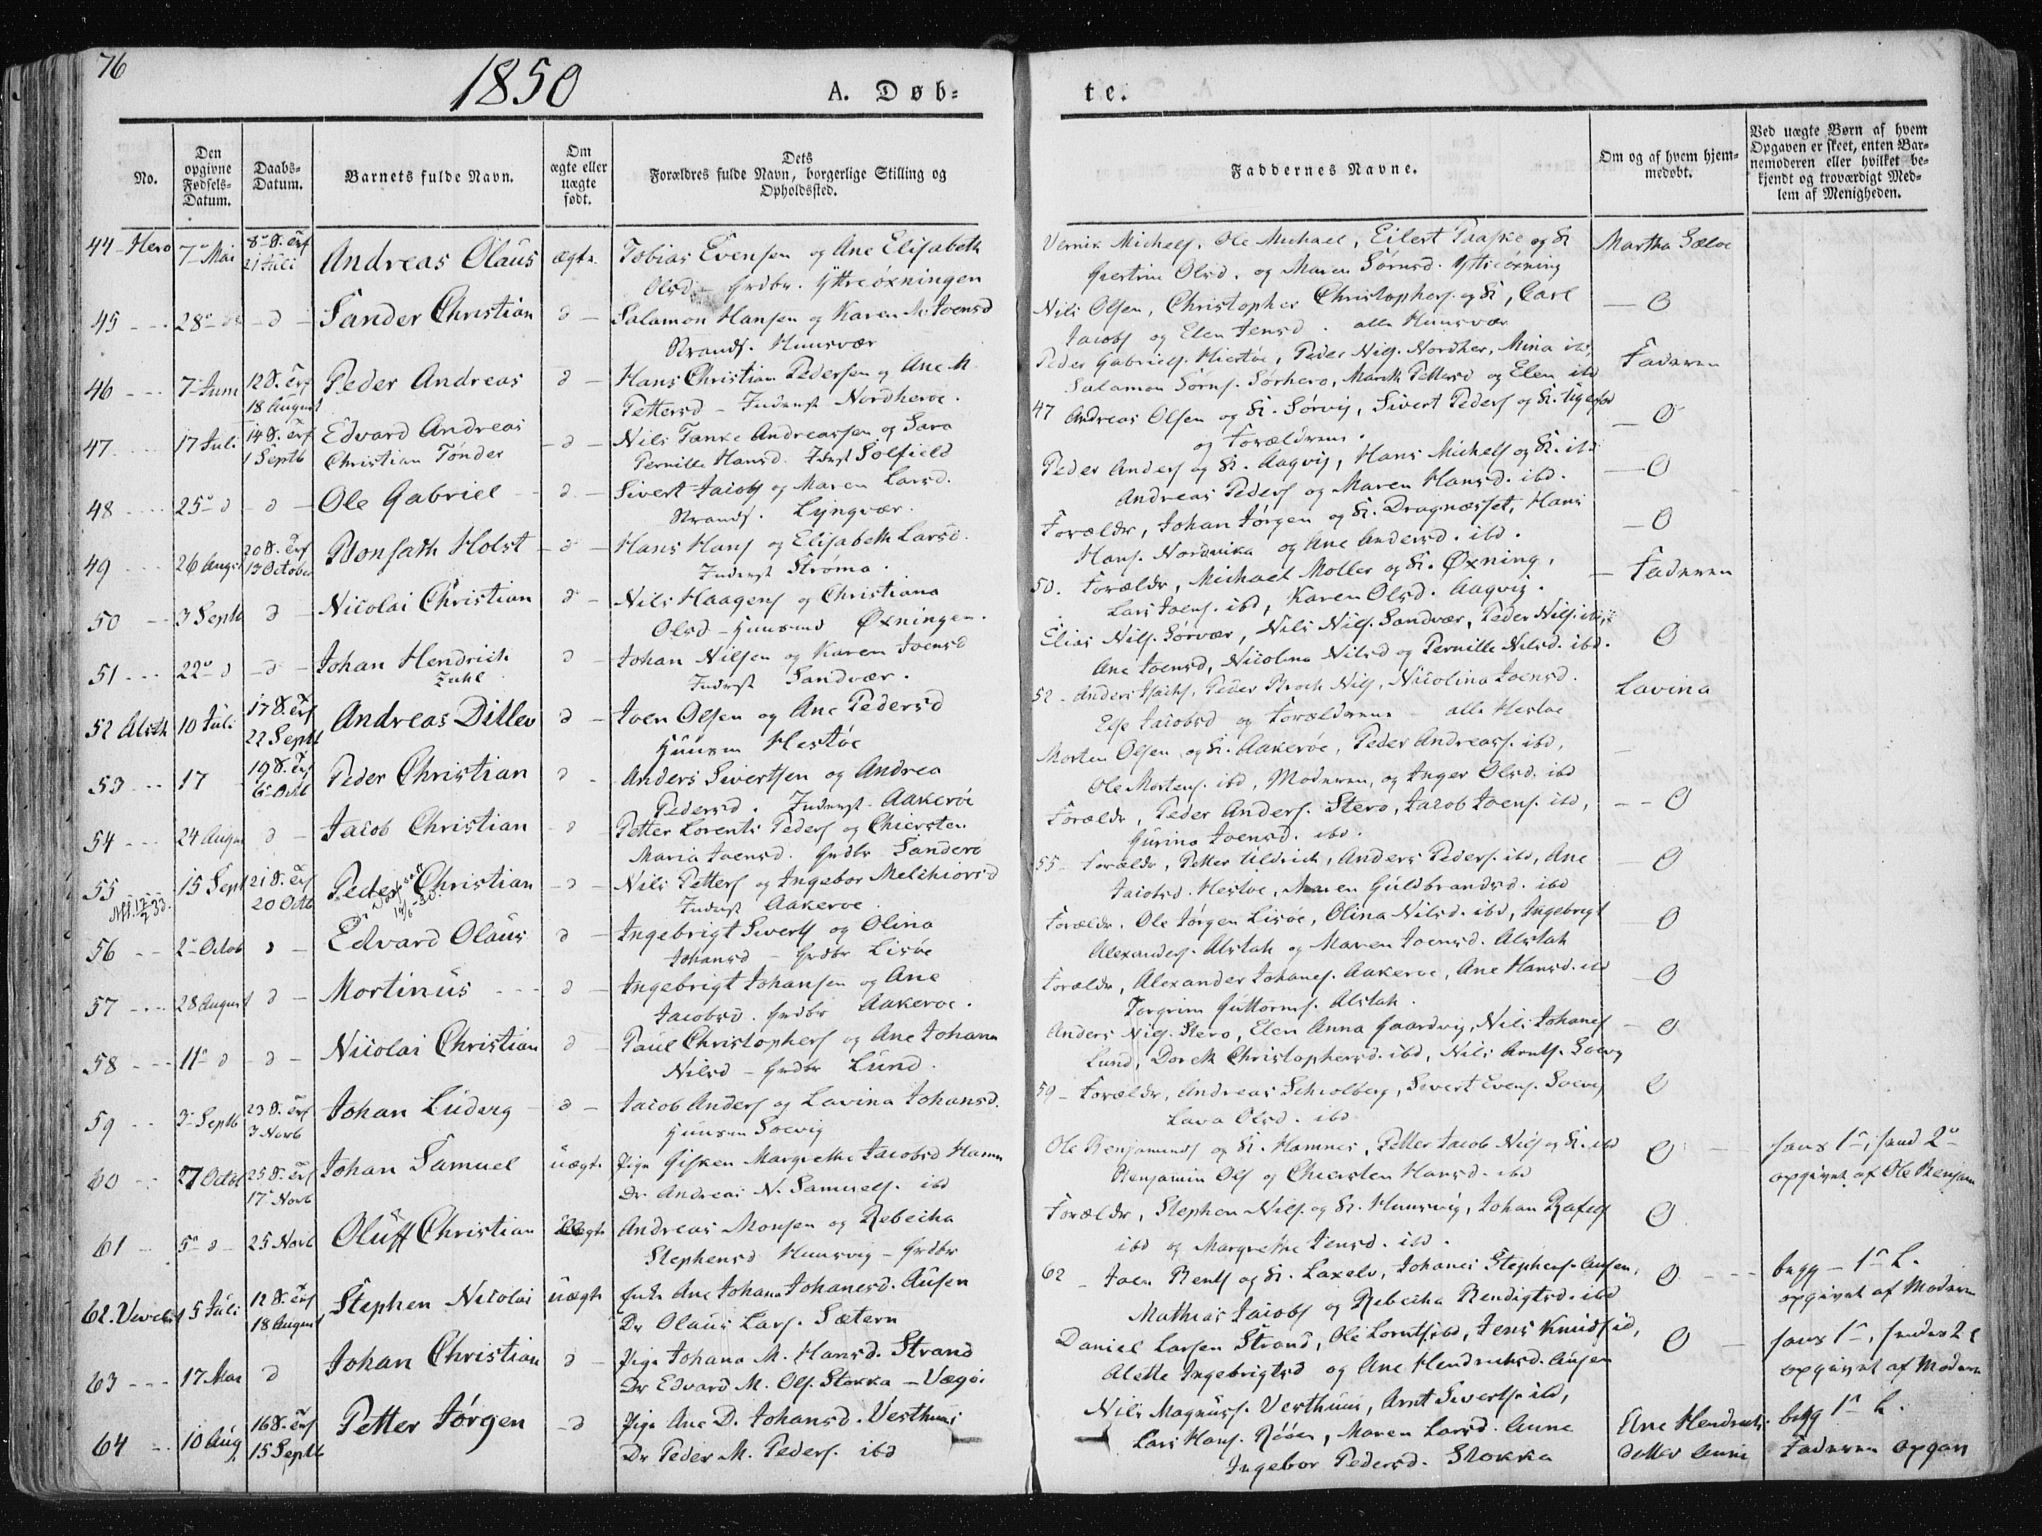 76
1850
A. Døb-
te.
No.
Den opgivne Fødsels-Datum.
Daabs-Datum.
Barnets fulde Navn.
Om ægte eller uægte født.
Dets Forældres fulde Navn, borgerlige Stilling og Opholdssted.
Faddernes Navne.
Om og af hvem hjem-medøbt.
Ved uægte Børn af hvem Opgaven er skeet, enten Bar-nemoderen eller hvilket be-kjendt og troværdigt Med-lem af Menigheden.
44 - Hero 7 Mai 21 Juli Andreas Olaus ægte Tobias Evensen og Ane Elisabeth
Olsd - Grdbr. Yttreøxningen
Ole Michael, Eilert
Olsd. og Maren Yttreøxning
Martha Sæloe
45 28 d Sander Christian d Salamon Hansen og Karen M. Joensd
Strands. Huusvær
Nils Olsen, Christopher Christophers. og K, Carl
Jacobs og Elen Jensd. alle Huusvær
O
46 7 Juni 12 S. Trf 18 August Peder Andreas d Hans Christian Pedersen og Ane M.
Pettersd - Inderst Nordheroe.
Peder Gabriels. Hiertøe, Peder Nils. Nordher, Mina ibd,
Salamon Sørns. Sørhero, Marith Pettersd og Elen ibd
Faderen
47 17 Juli 14 S. Trf 1 Septb Edvard Andreas
Christian Tønder
d Nils Tanke Andreassen og Sara
Pernille Hansd. Inderst Solfield
47 Andreas Olsen og K. Sørvig, Sivert Peders og K.
og Forældrene.
O
48 25 d d Ole Gabriel d Sivert Jacobs og Maren Larsd.
Strands. Lyngvær.
Peder Anders og K. Aagvig, Hans Michels og K. ibd
Andreas Peders og Maren Hansd. ibd.
O
49 26 Augs 20 S. Trf 13 October Bonsath Holst d Hans Hans og Elisabeth Larsd.
Inderst Strøma.
Forældr, Johan Jørgen og K. Dragnæsset, Hans
Hans. Nordvika og Ane Andersd. ibd.
O
50 3 Septb d Nicolai Christian d Nils Haagens og Christiana
Olsd - Huusmd Øxningen.
50. Forældr, Michael Moller og K. Øxning,
Lars Joens. ibd, Karen Olsd. Aagvig.
Faderen
51 22 d d Johan Hendrich
Zuhl
d Johan Nilsen og Karen Joensd
Inderst Sandvær.
Elias Nils. Sørvær, Nils Nils. Sandvær, Peder Nils. ibd,
Ane Joensd, Nicolina Nilsd og Pernille Nilsd. ibd.
O
52 Alsth 10 Juli 17 S. Trf 22 Septb Andreas Ditlev d Joen Olsen og Ane Pedersd
Huusm Hestøe
52 - Anders Isachs, Peder Broch Nils, Nicolina Joensd.
Else Jacobsd og Forældrene - alle Hestøe
Lavina
53 17 19 S. Trf 6 Octb Peder Christian d Anders Sivertsen og Andrea
Pedersd. Inderst - Aakerøe
Morten Olsen og K. Aakerøe, Peder Andreass. ibd,
Ole Mortens. ibd, Moderen, og Inger Olsd. ibd
54 24 Augus d Jacob Christian d Petter Lorents Peders og Chiersten
Maria Joensd. Grdbr Sanderø
Forældr, Peder Anders. Stero, Jacob Joens. ibd,
Gurina Joensd. ibd.
O
55 15 Sept 21 S. Trf 20 Octb Peder Christian d Nils Petters og Ingebor Melchiorsd
Inderst Aakeroe.
55 - Forældr, Petter Uldrich, Anders Peders. ibd, Ane
Jacobsd. Hestøe, Maren Guldbrandsd. ibd
O
56 2 Octob d Edvard Olaus d Ingebrigt Siverts og Olina
Johansd - Grdbr Lisøe
Forældr. Ole Jørgen Lisøe, Olina Nilsd. ibd, Ingebrigt
Alexanders. Alstah og Maren Joensd. Alstah
O
57 28 August d Mortinus d Ingebrigt Johansen og Ane
Jacobsd. Grdbr Aakeroe.
Forældr, Alexander Johanes. Aakeroe, Ane Hansd. ibd
Torgrim Guttorms. Alstah.
O
58 11 d d Nicolai Christian d Paul Christophers og Ane Johana
Nilsd - Grdbr Lund.
Anders Nils. Stero, Elen Anna Gaardvig, Nils Johanes
Lund, Dorth Christophersd. ibd, Nils Arnts. Soevg
O
59 3 Septb 23 S. Trf 3 Novb Johan Ludvig d Jacob Anders og Lavina Johansd.
Huusm Soevig
59 - Forældr, Andreas Schiolberg, Sivert Evens. Soevig
Lava Olsd. ibd.
O
60 27 Octbr 25 S. Trf 17 Novb Johan Samuel uægte Pige Gisken Margrethe Jacobsd Hamn
Dr. Andreas N. Samuels. ibd
Ole Benjamins og K. Hamnes, Petter Jacob Nils og K. ibd
Benjamin Ols og Chiersten Hansd. ibd
O
opgivet af Ole Benjam
61 5 d 25 Novb Oluff Christian ægte Andreas Monsen og Rebecha
Stephensd Huusvig - Grdbr
Forældr, Stephen Nils. og K. Huusvig, Johan
ibd og Margrethe Jensd. ibd.
O
62. 5 Juli 12 S. Trf 18 August Stephen Nicolai uægte Enke Ane Johana Johanesd. Ausen
Dr Olaus Lars. Sætern
62 - Joen Bents og K. Laxelv, Johanes Stephens. Ausen,
Mathias Jacobs og Rebecha Bendigtsd. ibd
O
begg - 1 L.
opgivet af Moderen
63 17 Mai d Johan Christian d Pige Johana M. Hansd. Strand
Dr Edvard M. Ols. Stokka - Vægø.
Daniel Larsen Strand, Ole Lornts ibd, Jens Knuds ibd,
Alette Ingebrigtsd og Ane Hendrichsd. Ausen
O
opgivet af Moderen
64 10 Aug 16 S. Trf 15 Septb Petter Jørgen d Pige Ane D. Johansd. Vesthuus
Dr Peder M. Peders. ibd
Nils Magnuss. Vesthuus, Arnt Siverts. ibd,
Lars Hans. Røøen, Maren Larsd. Aune
Ingebor Pedersd. Stokka
Ane Hendrichs-
datter Aune
begg 1 L.
Faderen opgav